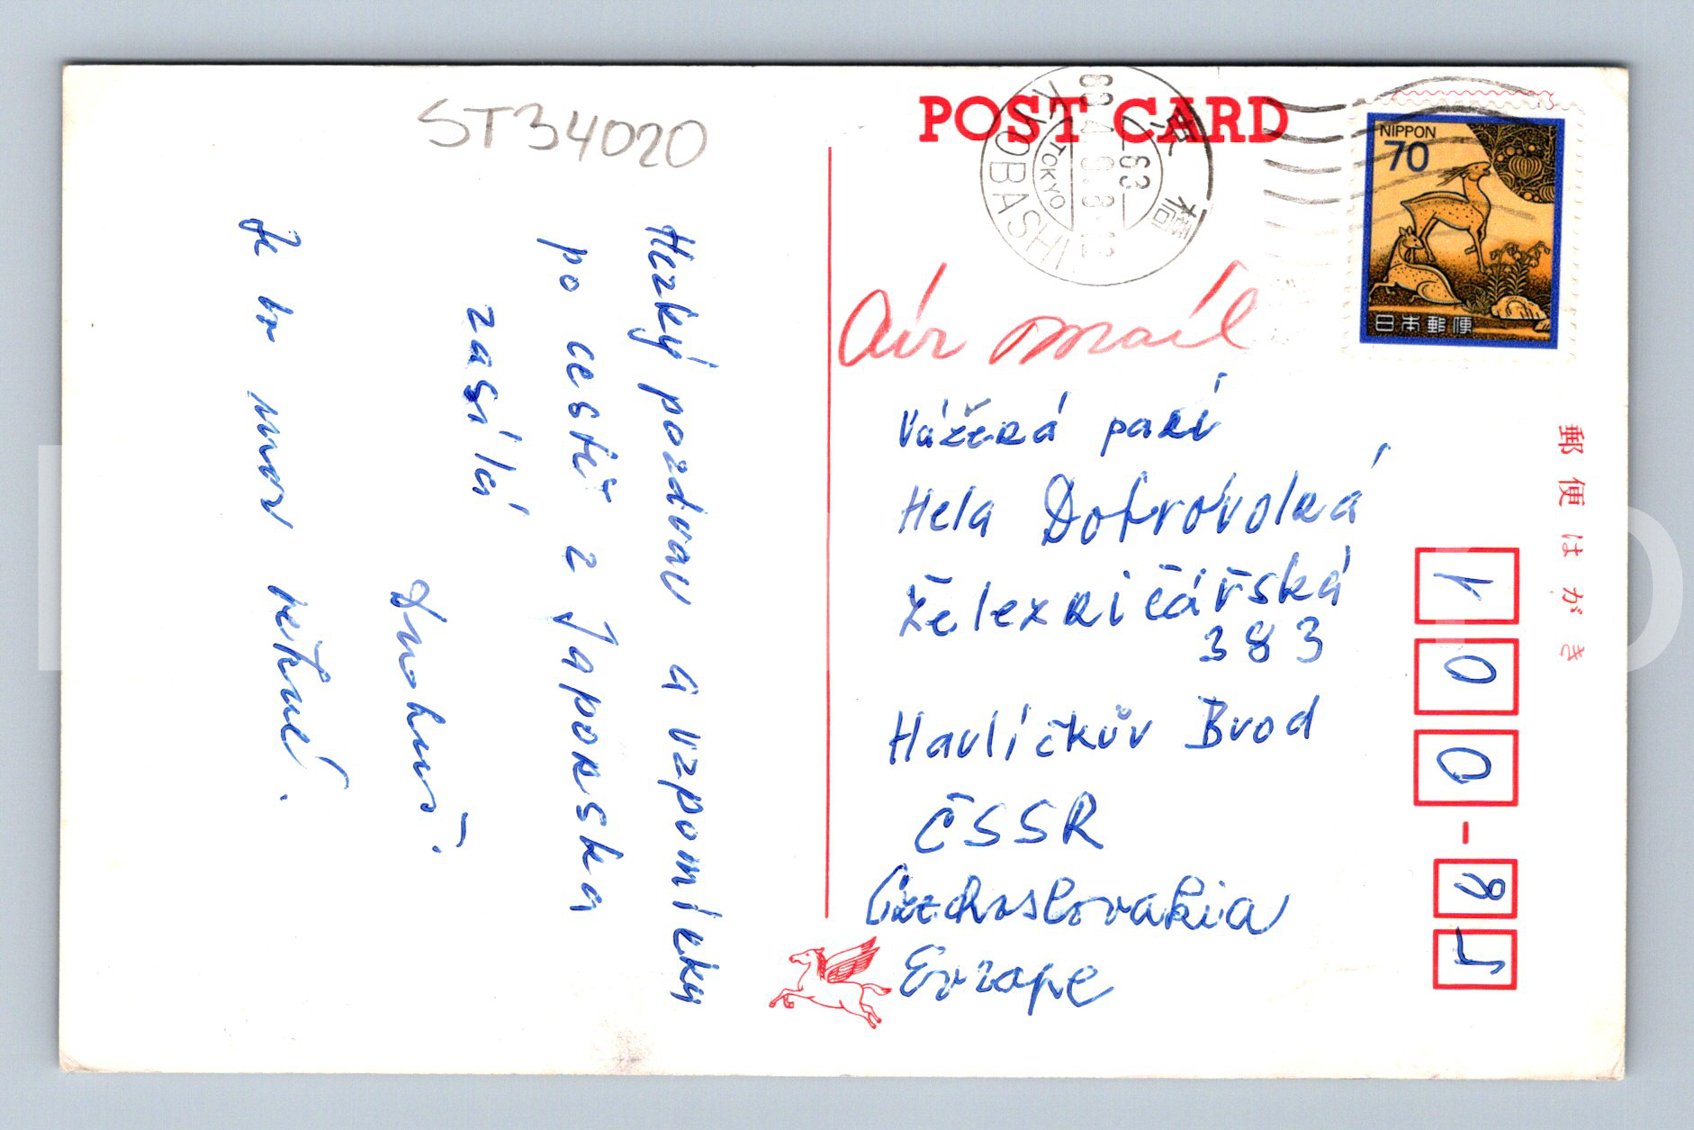 ST34020
POST CARD
KYOBASHI
TOKYO
京橋
NIPPON
70
日本郵便
Air mail
Hezký pozdrav a vzpomínku
po cestě z Japonska
zasílá
Je to moc
Vážená paní
Hela Dobrovolná
Železničářská
383
Havlíčkův Brod
ČSSR
Czechoslovakia
Evrope
郵便はがき
1 0 0 - 8 5